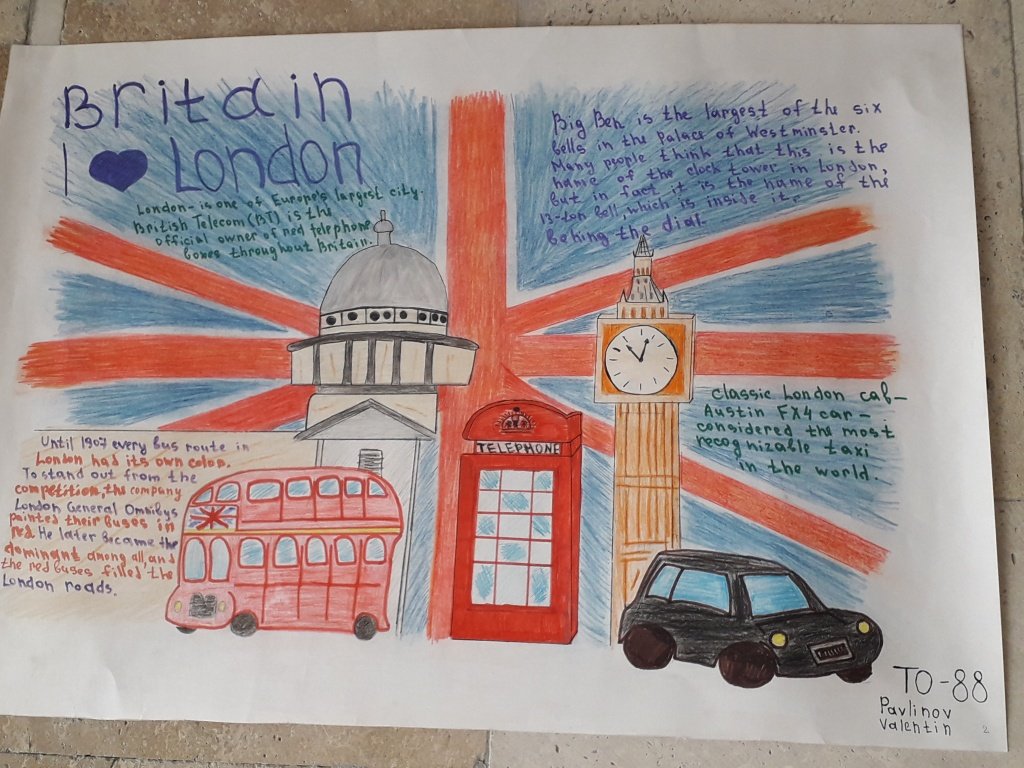 Britain
I London
London- is one of Europe's largest city.
British Telecom (BT) is the
official owner of red telephone
boxes throughout Britain.
Big Ben is the largest of the six
bells in the Palace of Westminster.
Many people think that this is the
name of the clock tower in London,
but in fact it is the name of the
13-ton bell, which is inside it,
behing the dial.
classic London cab-
Austin FX4 car-
considered the most
recognizable taxi
in the world.
Until 1907 every bus route in
London had its own color.
To stand out from the
competition, the company
London General Omnibys
painted their buses in
red. He later became the
dominant among all, and
the red buses filled the
London roads.
TELEPHONE
TO-88
Pavlinov
Valentin
2